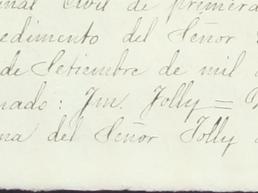 nal Civil de primera
edimento del Señor
de Setiembre de mil
nado: Jm. Jolly =
ma del Señor Jolly